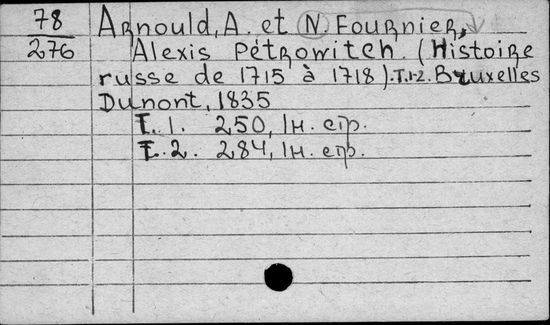 78
276
Arnould, A. et N. Fournier,
Alexis Pétrowitch. (Histoire
russe de 1715 à 1718). T.1-2. Bruxelles
Dumont, 1835
T. 1. 250, 1 н. стр.
T. 2. 284, 1 н. стр.